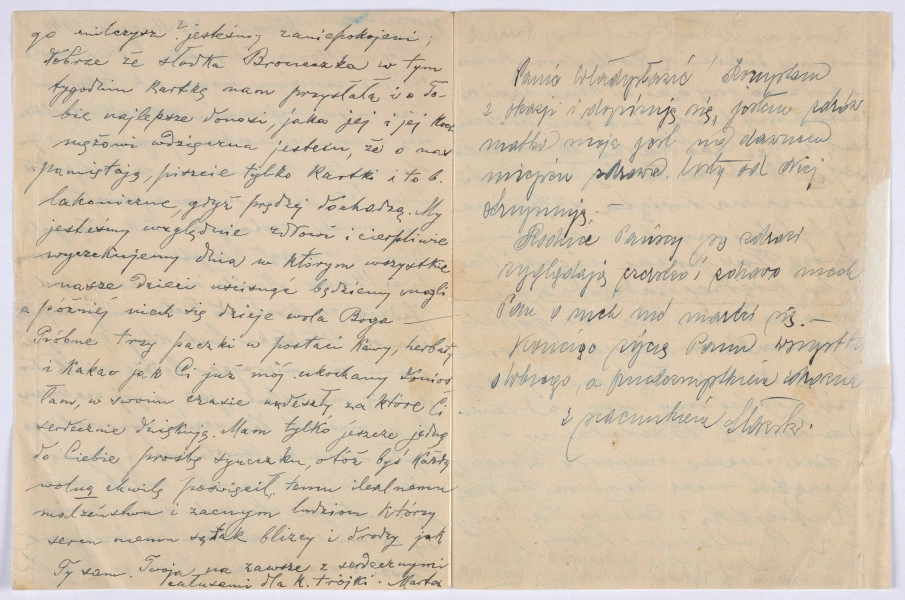 go milczysz? jesteśmy zaniepokojeni;
dobrze że słodka Broneczka w tym
tygodniu kartkę nam przysłała i o To-
bie najlepsze donosi, jako jej i jej
mężowi wdzięczna jestem, że o nas
pamiętają, piszcie tylko kartki i to b.
lakoniczne, gdyż prędzej dochodzą. My
jesteśmy względnie zdrowi i cierpliwie
wyczekujemy dnia w którym wszystkie
nasze Dzieci uścisnąć będziemy mogli
a później niech się dzieje wola Boga —
Próbne trzy paczki w postaci Kawy, herbaty
i Kakao jak Ci już mój ukochany
łam, w swoim czasie nadeszły za które Ci
serdecznie dziękuję. Mam tylko jeszcze jedną
do Ciebie prośbę syneczku, otóż byś każdą
wolną chwilę poświęcił, temu idealnemu
małżeństwu i zacnym ludziom którzy
sercu memu są tak blizcy i drodzy jak
Ty sam. Twoja na zawsze z serdecznymi
całusami dla K. trójki. Marta
Panie Władysławie! Korzystam
z okazji i dopisuję się, jestem zdrów
matka moja jest niedawno
zdrowa. listy od Niej
otrzymuję. —
Rodzice Pańscy po zdrowi
wyglądają i zdrowo niech
Pan o nich nie martwi się. —
Kończąc życzę Panu wszystk
dobrego, a
z szacunkiem